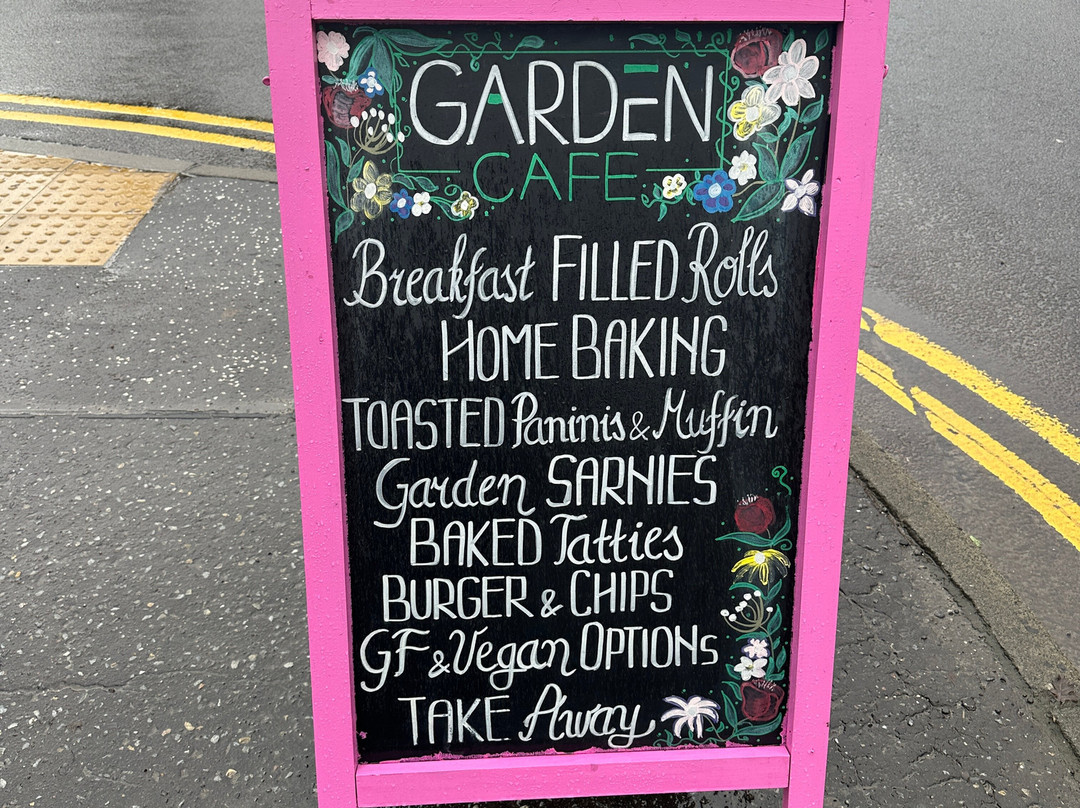 GARDEN
CAFE
Breakfast FILLED Rolls
HOME BAKING
TOASTED Paninis & Muffin
Garden SARNIES
BAKED Tatties
BURGER & CHIPS
GF & Vegan OPTIONS
TAKE Away